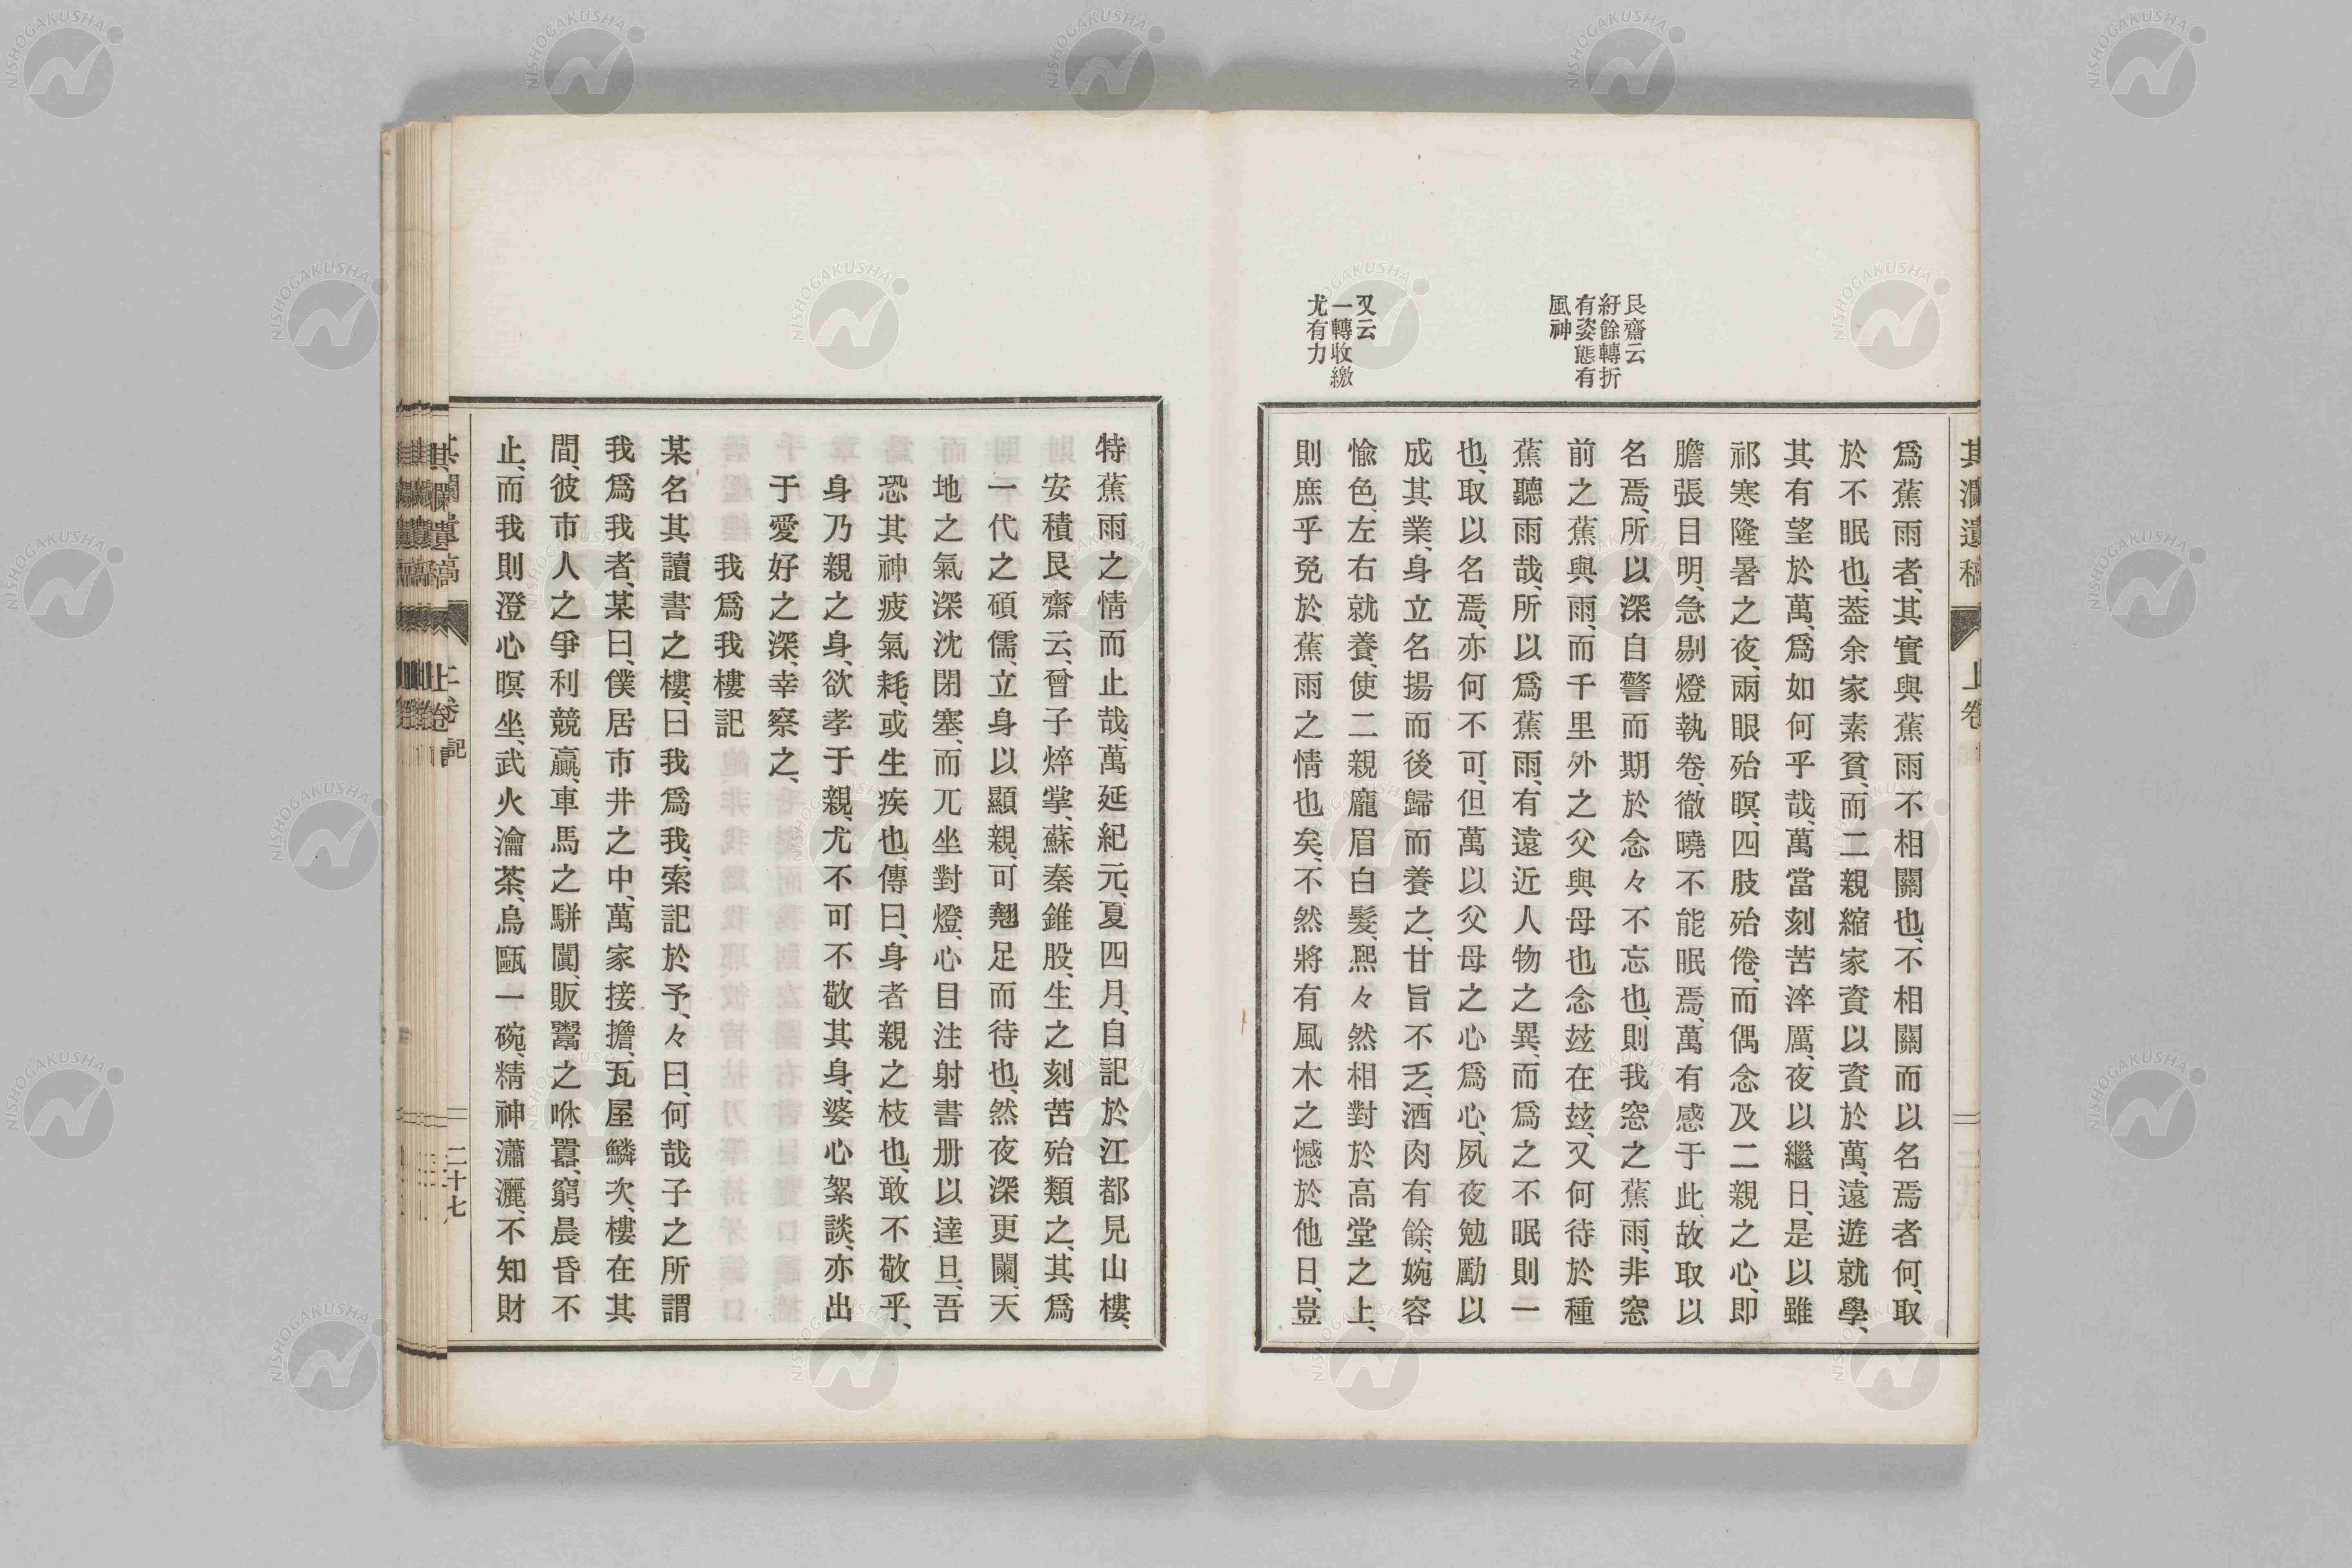 其瀾遺稿 上卷
艮齋云
紆餘轉折
有姿態有
風神
又云
一轉收繳
尤有力
爲蕉雨者、其實與蕉雨不相關也、不相關而以名焉者何、取
於不眠也、蓋余家素貧、而二親縮家資以資於萬、遠遊就學、
其有望於萬、爲如何乎哉、萬當刻苦淬厲、夜以繼日、是以雖
祁寒隆暑之夜、兩眼殆瞑、四肢殆倦、而偶念及二親之心、即
膽張目明、急剔燈執卷、徹曉不能眠焉、萬有感于此、故取以
名焉、所以深自警而期於念々不忘也、則我窓之蕉雨、非窓
前之蕉與雨、而千里外之父與母也念玆在玆、又何待於種
蕉聽雨哉、所以爲蕉雨、有遠近人物之異、而爲之不眠則一
也、取以名焉、亦何不可、但萬以父母之心爲心、夙夜勉勵以
成其業、身立名揚而後歸而養之、甘旨不乏、酒肉有餘、婉容
愉色、左右就養、使二親龐眉白髮、熙々然相對於高堂之上、
則庶乎免於蕉雨之情也矣、不然將有風木之憾於他日、豈
特蕉雨之情而止哉、萬延紀元、夏四月、自記於江都見山樓、
安積艮齋云、曾子焠掌、蘇秦錐股、生之刻苦殆類之、其爲
一代之碩儒、立身以顯親、可翹足而待也、然夜深更闌、天
地之氣深沈閉塞、而兀坐對燈、心目注射書册以達旦、吾
恐其神疲氣耗、或生疾也、傳曰、身者親之枝也、敢不敬乎、
身乃親之身、欲孝于親、尤不可不敬其身、婆心絮談、亦出
于愛好之深、幸察之、
我爲我樓記
某名其讀書之樓、曰我爲我、索記於予、々曰、何哉子之所謂
我爲我者、某曰、僕居市井之中、萬家接擔、瓦屋鱗次、樓在其
間、彼市人之爭利競贏、車馬之駢闐、販鬻之咻囂、窮晨昏不
止、而我則澄心瞑坐、武火瀹茶、烏甌一碗、精神瀟灑、不知財
其瀾遺稿 上卷 記 二十七